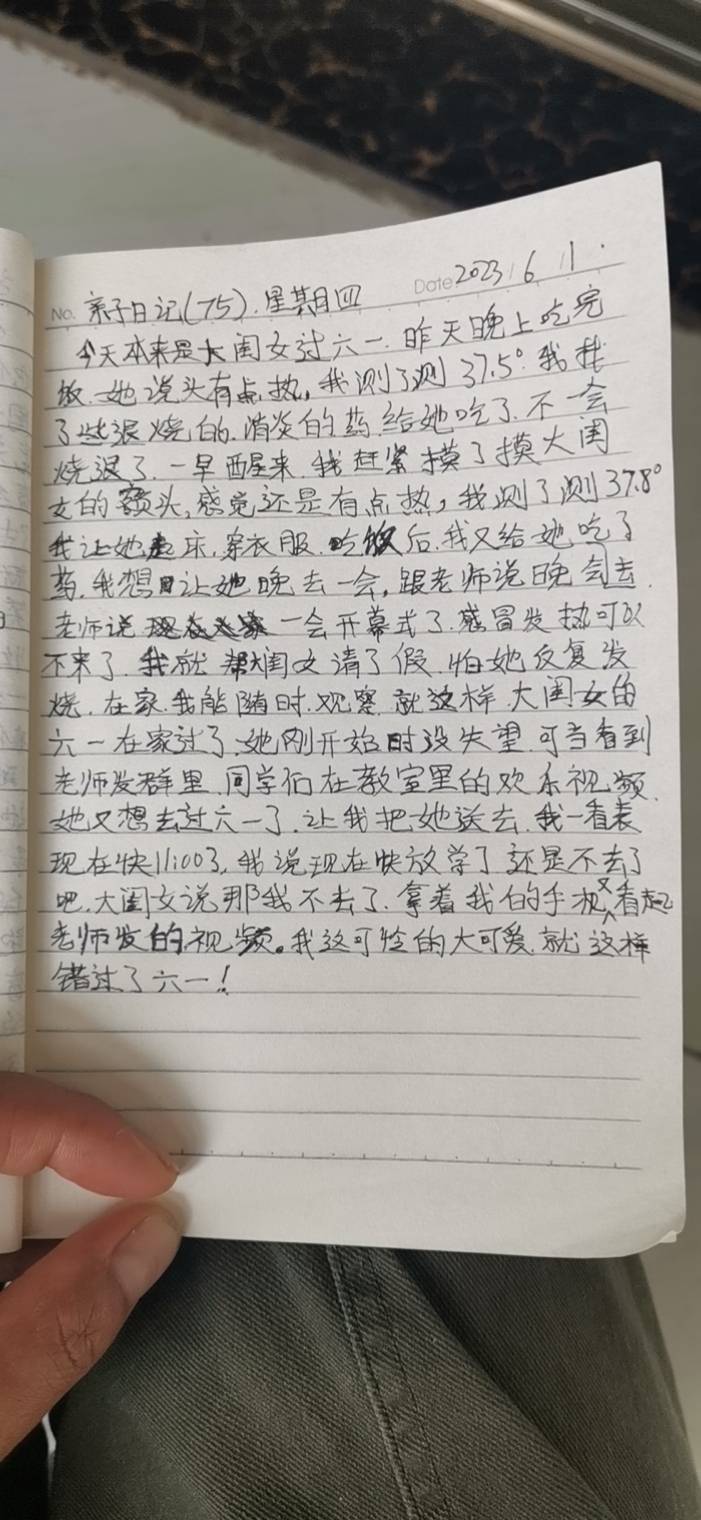 No. 亲子日记(75).星期四 Date 2023/6/1.
今天本来是大闺女过六一.昨天晚上吃完
饭.她说头有点热,我测了测37.5°.我找
了些退烧的.消炎的药.给她吃了.不一会
烧退了.一早醒来.我赶紧摸了摸大闺
女的额头,感觉还是有点热,我测了测37.8°
我让她起床,穿衣服.吃饭后.我又给她吃了
药.我想让她晚去一会,跟老师说晚会去.
老师说一会开幕式了.感冒发热可以
不来了.我就帮大闺女请了假.怕她反复发
烧.在家.我能随时.观察.就这样.大闺女的
六一在家过了.她刚开始时没失望.可当看到
老师发群里.同学们在教室里的欢乐视频.
她又想去过六一了.让我把她送去.我一看表
现在快11:00了,我说现在快放学了还是不去了
吧.大闺女说那我不去了.拿着我的手机又看起
老师发的视频。我这可怜的大可爱.就这样
错过了六一!